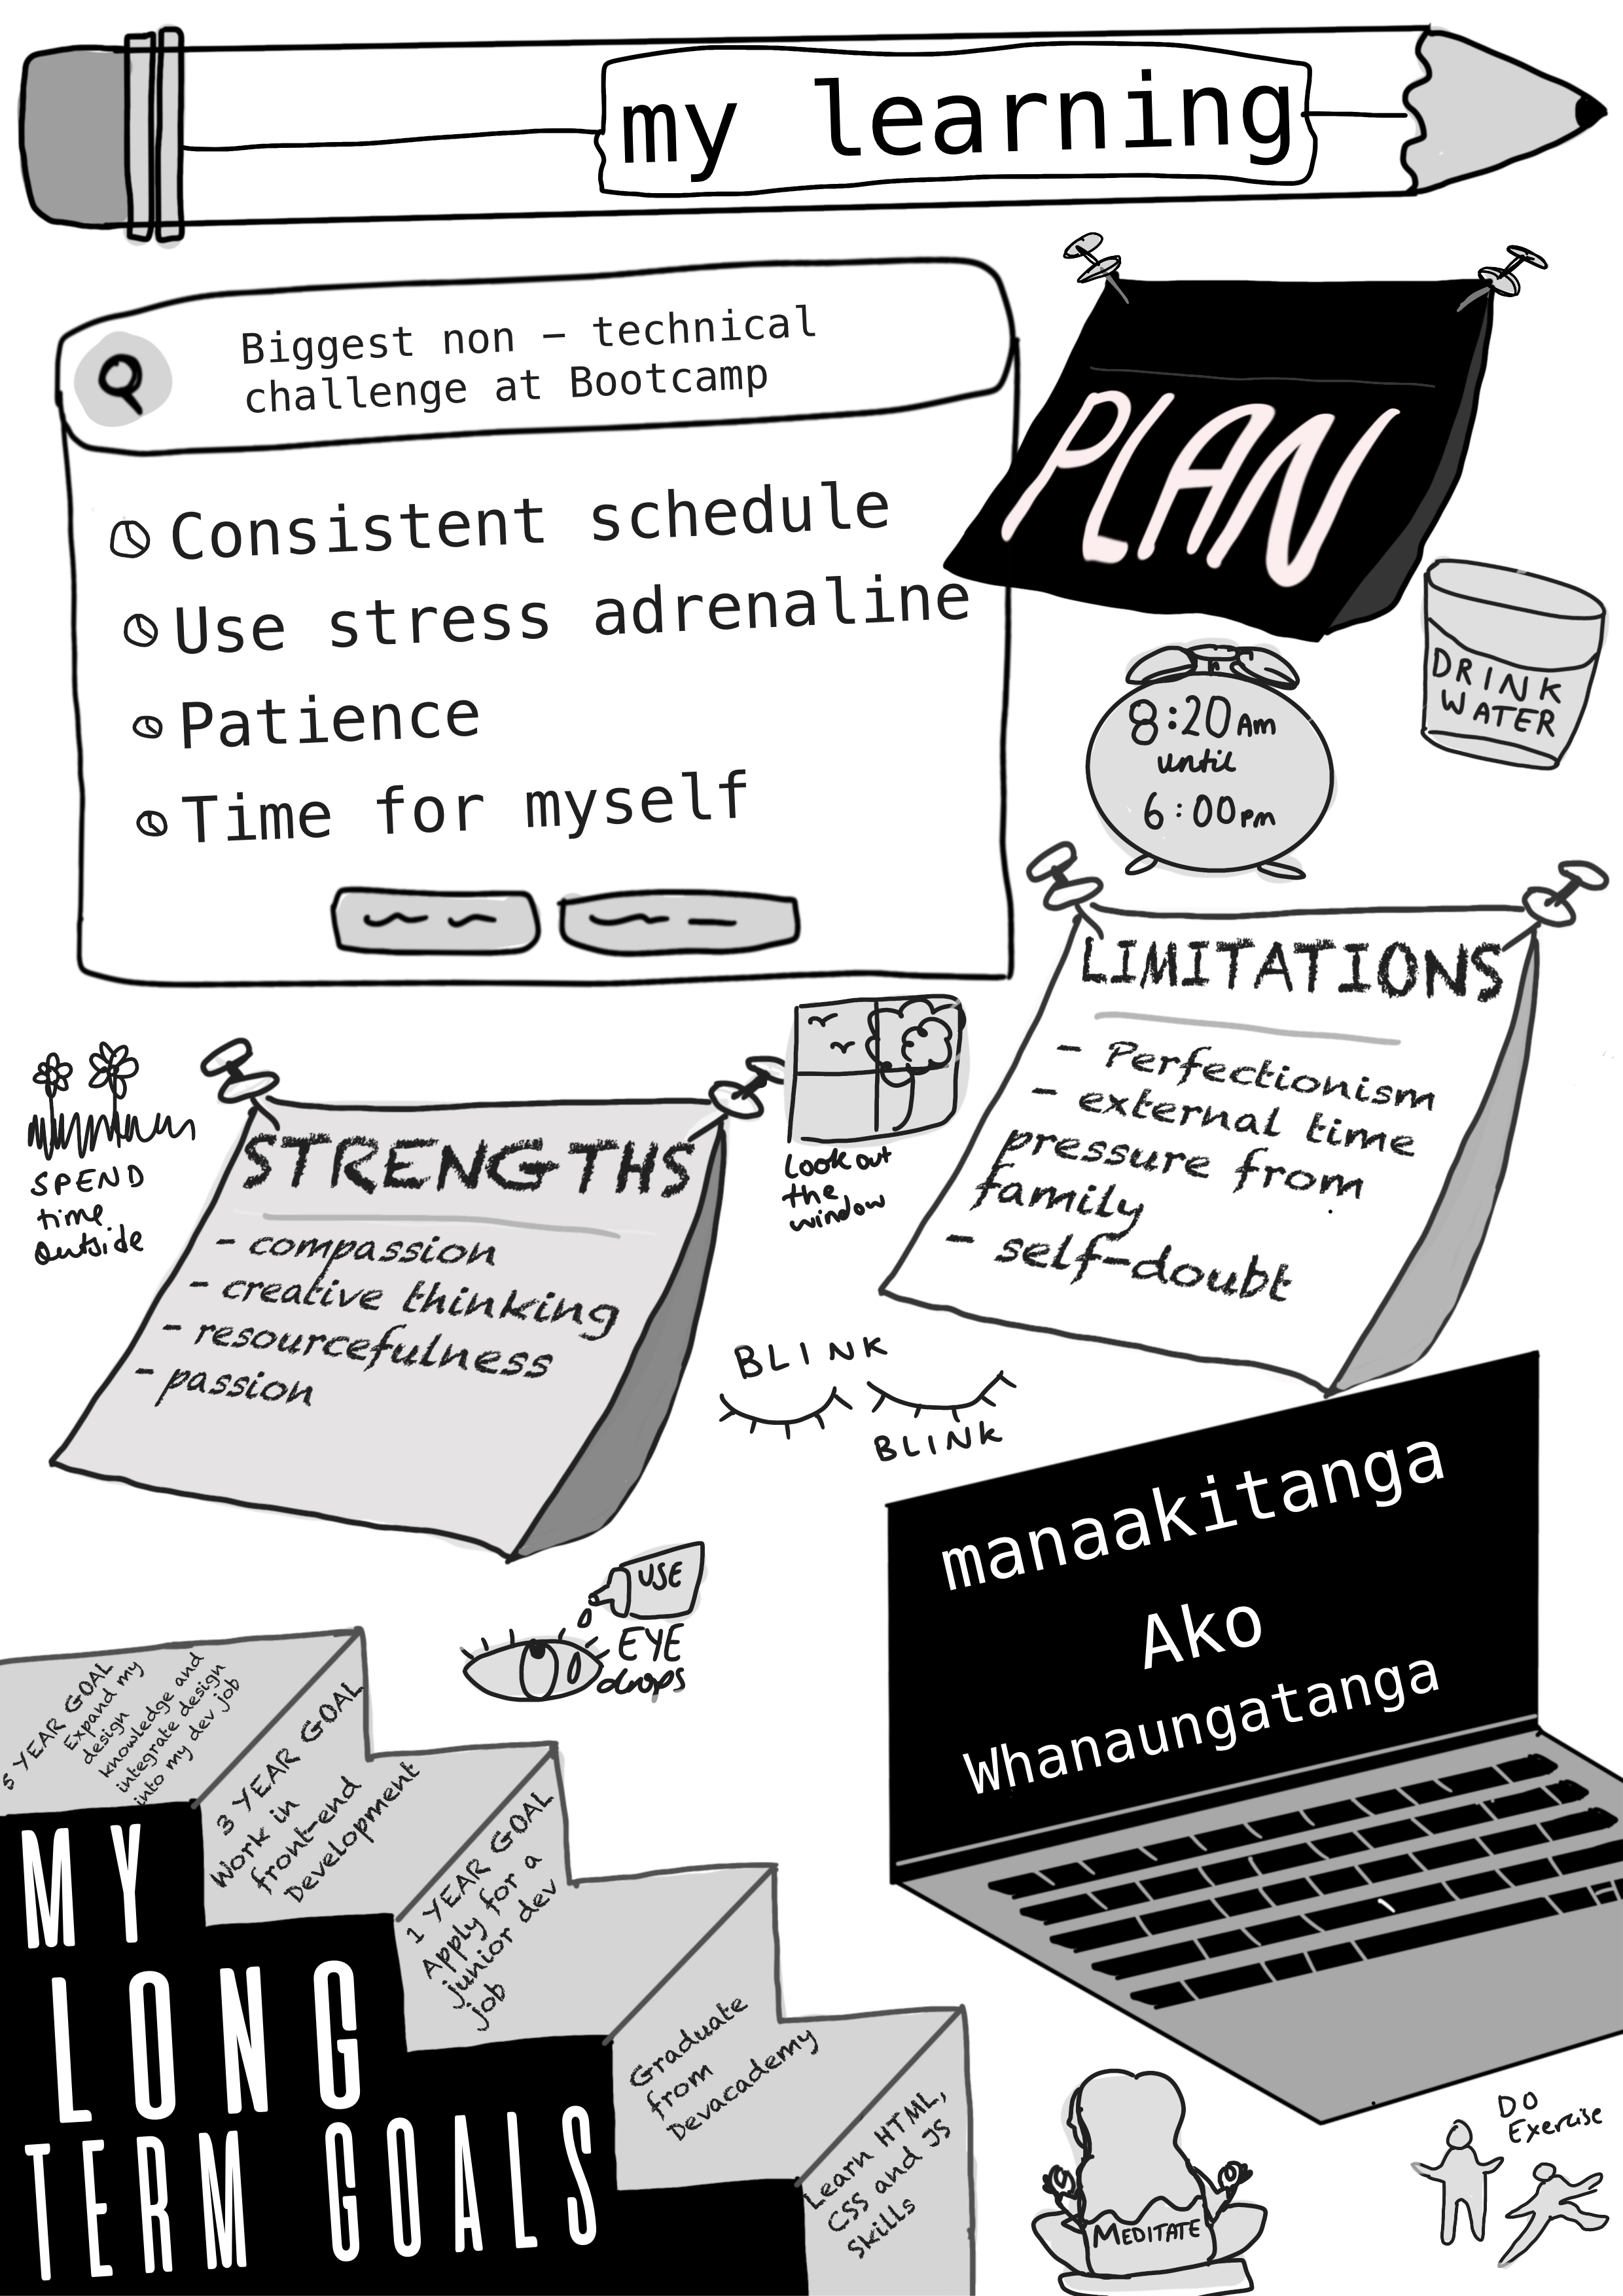 my learning
Biggest non - technical
challenge at Bootcamp
Consistent schedule
Use stress adrenaline
Patience
Time for myself
PLAN
DRINK
WATER
8:20 Am
until
6:00 pm
LIMITATIONS
- Perfectionism
- external time
pressure from
family
- self-doubt
Look out
the
window
SPEND
time
outside
STRENGTHS
- compassion
- creative thinking
- resourcefulness
- passion
BLINK
BLINK
manaakitanga
Ako
Whanaungatanga
USE
EYE
drops
5 YEAR GOAL
Expand my
design
knowledge and
integrate design
into my dev job
3 YEAR GOAL
Work in
front-end
Development
1 YEAR GOAL
Apply for a
junior dev
job
Graduate
from
Devacademy
Learn HTML,
CSS and JS
skills
MY
LONG
TERM GOALS
MEDITATE
DO
Exercise